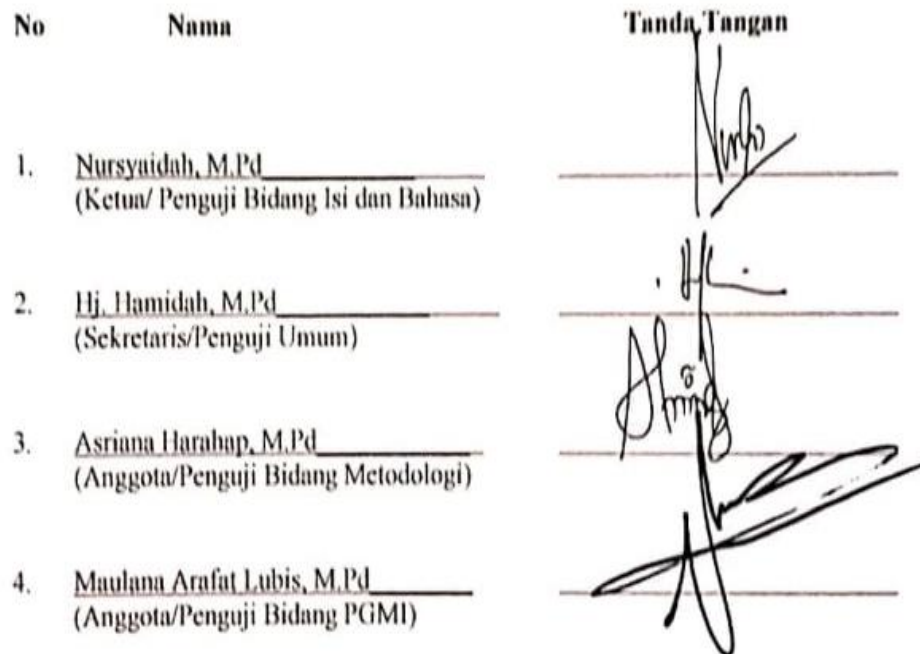 No Nama Tanda Tangan
1. Nursyaidah, M.Pd
(Ketua/ Penguji Bidang Isi dan Bahasa)
2. Hj. Hamidah, M.Pd
(Sekretaris/Penguji Umum)
3. Asriana Harahap, M.Pd
(Anggota/Penguji Bidang Metodologi)
4. Maulana Arafat Lubis, M.Pd
(Anggota/Penguji Bidang PGMI)